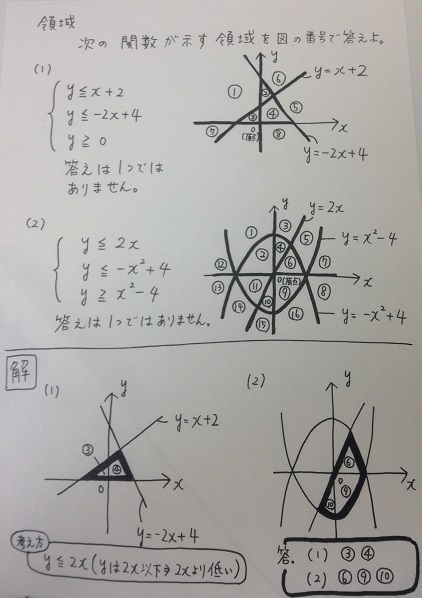 領域
次の関数が示す領域を図の番号で答えよ。
(1)
y≦x+2
y≦-2x+4
y≧0
答えは1つでは
ありません。
y
① ② ③ ④ ⑤ ⑥ ⑦ ⑧
y=x+2
0
(原点)
x
y=-2x+4
(2)
y≦2x
y≦-x²+4
y≧x²-4
答えは1つではありません。
y
y=2x
① ② ③ ④ ⑤ ⑥ ⑦ ⑧ ⑨ ⑩ ⑪ ⑫ ⑬ ⑭ ⑮ ⑯
y=x²-4
x
0(原点)
y=-x²+4
解
(1)
y
y=x+2
③ ④
0
x
y=-2x+4
(2)
y
⑥ ⑨ ⑩
0
x
考え方
y≦2x(yは2x以下⇒2xより低い)
答。 (1) ③ ④
(2) ⑥ ⑨ ⑩